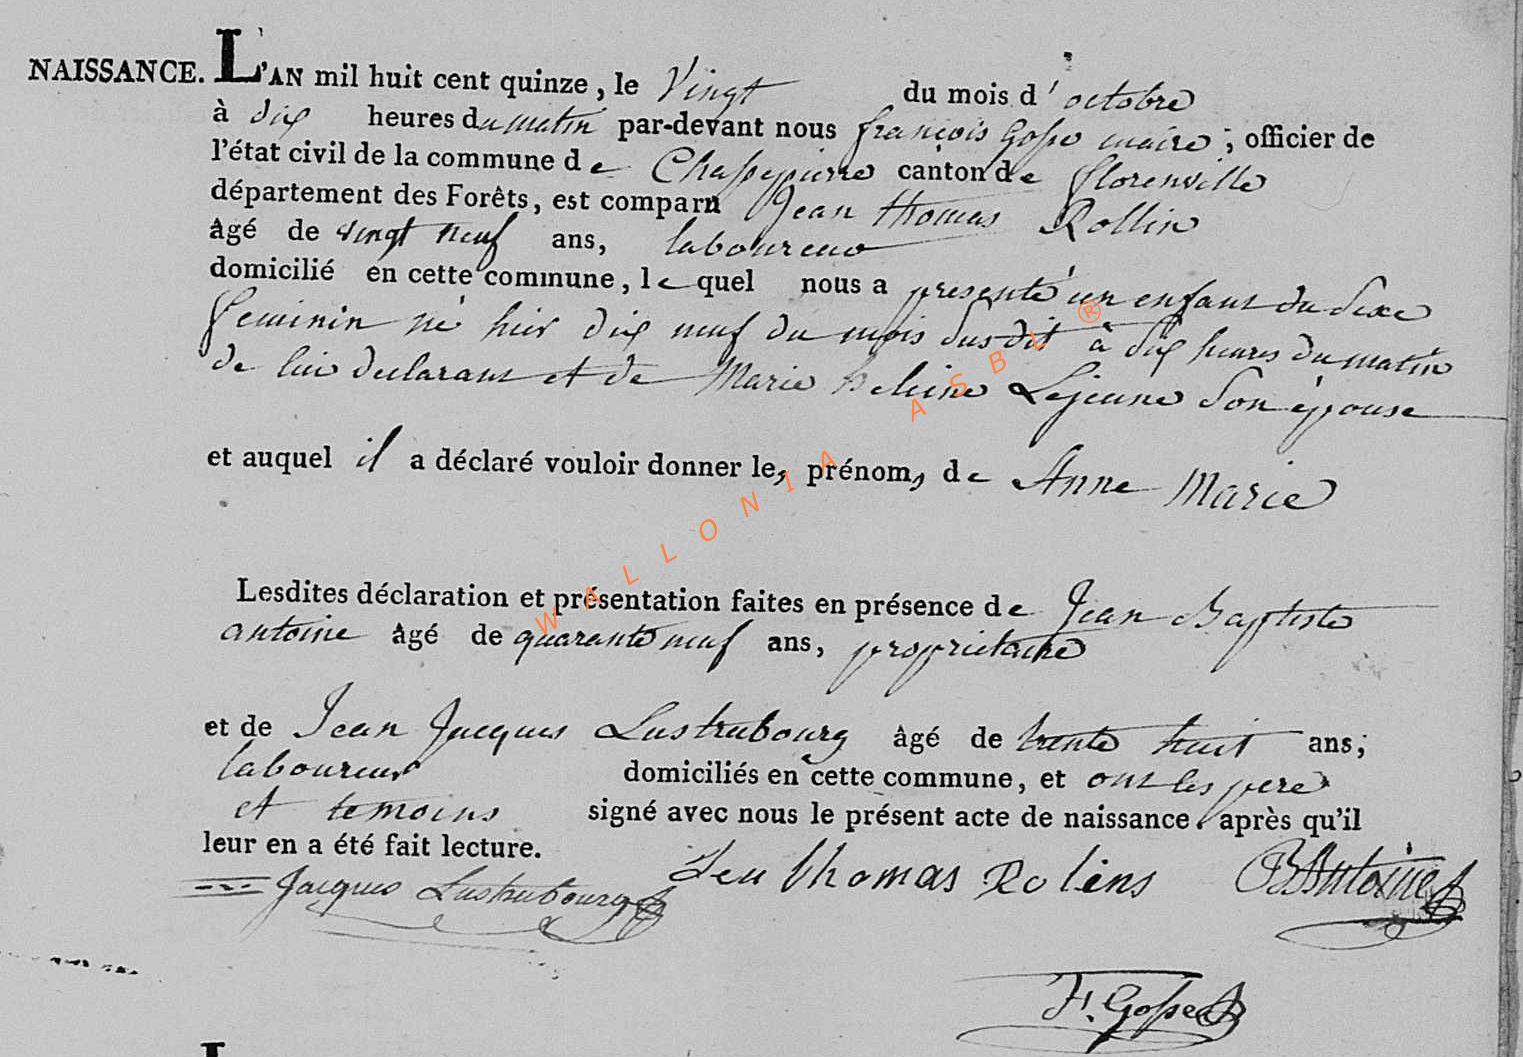 NAISSANCE. L'AN mil huit cent quinze, le Vingt du mois d'octobre
à dix heures du matin par-devant nous françois Gosse maire, officier de
l'état civil de la commune de Chassepierre canton de florenville
département des Forêts, est comparu Jean thomas Rollin
âgé de vingt neuf ans, laboureur
domicilié en cette commune, lequel nous a presenté un enfant du sexe
feminin né hier dix neuf du mois susdit à dix heures du matin
de lui declarant et de Marie Lejeune son épouse
et auquel il a déclaré vouloir donner les prénoms de Anne Marie
Lesdites déclaration et présentation faites en présence de Jean Baptiste
antoine âgé de quarante neuf ans, propriétaire
et de Jean Jacques Lustrubourg âgé de trente huit ans;
laboureur domiciliés en cette commune, et ont les pere
et temoins signé avec nous le présent acte de naissance. après qu'il
leur en a été fait lecture.
Jacques Lustrubourg Jen thomas Rolins B Antoine
F. Gosse
WALLONIA ASBL ®